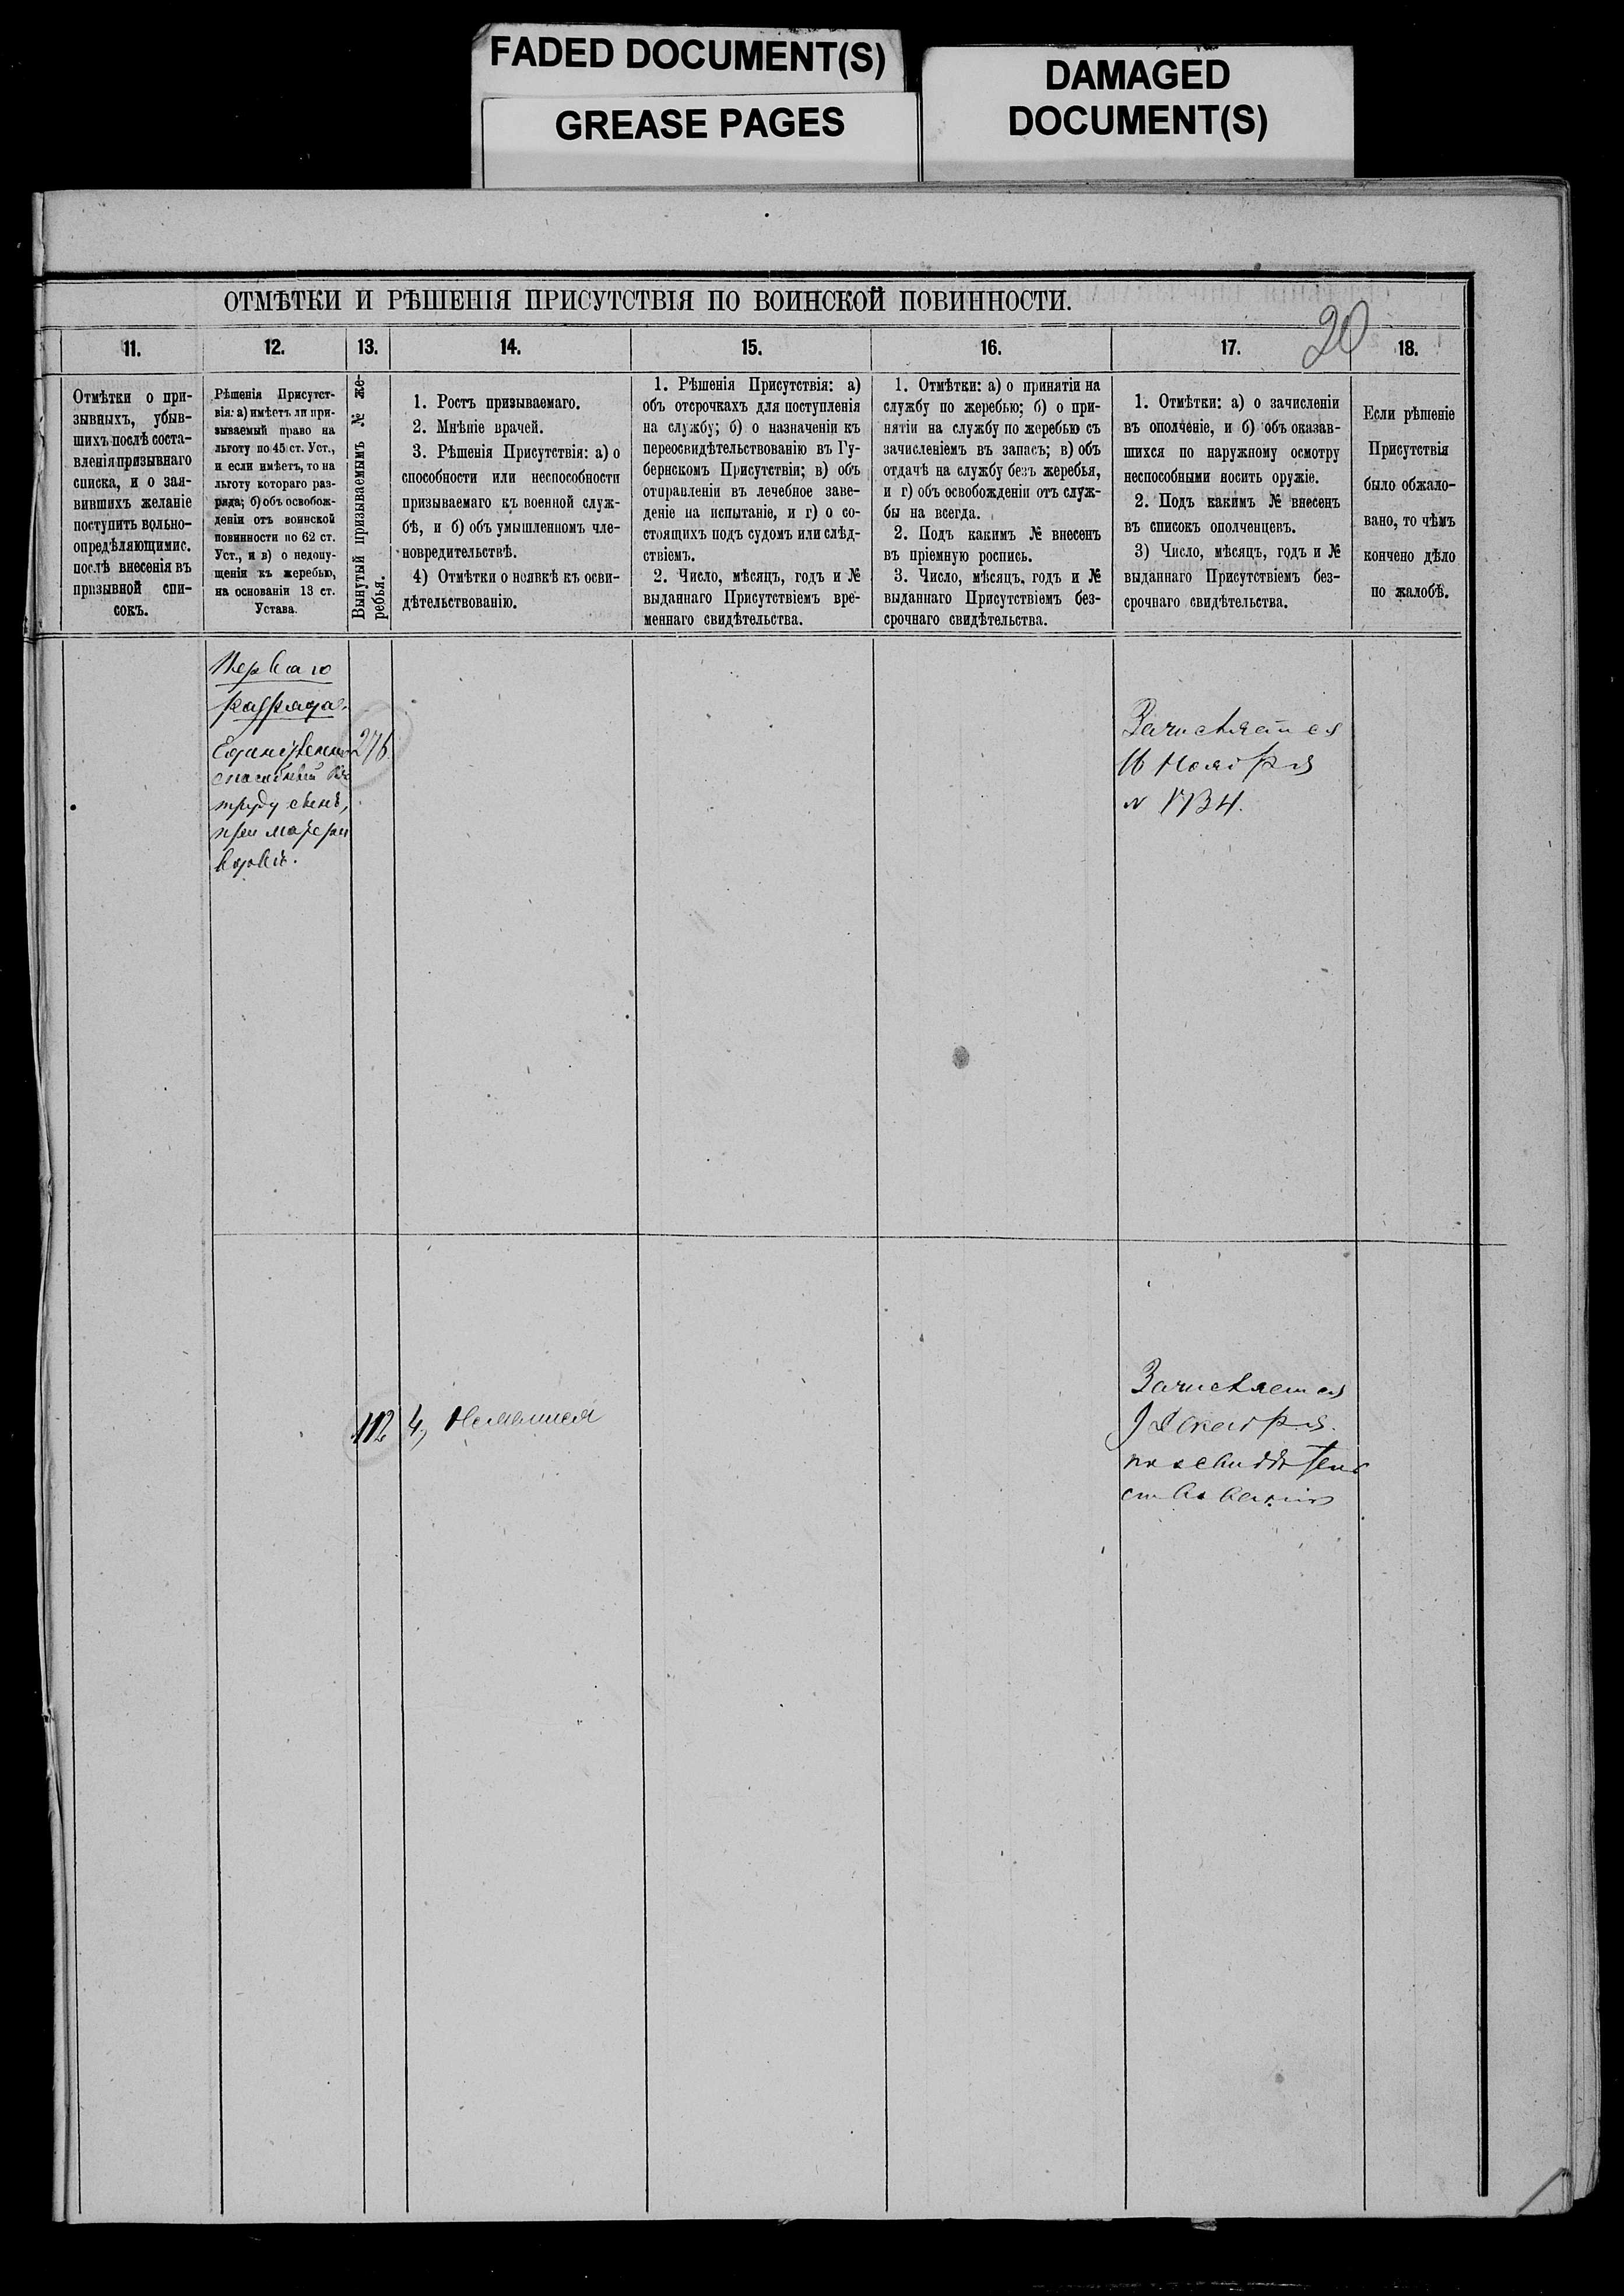 FADED DOCUMENT(S)
GREASE PAGES
DAMAGED
DOCUMENT(S)
ОТМѢТКИ И РѢШЕНІЯ ПРИСУТСТВІЯ ПО ВОИНСКОЙ ПОВИННОСТИ.
20
11.
12.
13.
14.
15.
16.
17.
18.
Отмѣтки о при-
зывныхъ, убыв-
шихъ послѣ соста-
вленія призывнаго
списка, и о зая-
вившихъ желаніе
поступить вольно-
опредѣляющимис.
послѣ внесенія въ
призывной спи-
сокъ.
Рѣшенія Присутст-
вія: а) имѣетъ ли при-
зываемый право на
льготу по 45 ст. Уст.,
и если имѣетъ, то на
льготу котораго раз-
ряда; б) объ освобож-
деніи отъ воинской
повинности по 62 ст.
Уст., и в) о недопу-
щеніи къ жеребью,
на основаніи 13 ст.
Устава.
Вынутый призываемымъ № же-
ребья.
1. Ростъ призываемаго.
2. Мнѣніе врачей.
3. Рѣшенія Присутствія: а) о
способности или неспособности
призываемаго къ военной служ-
бѣ, и б) объ умышленномъ чле-
новредительствѣ.
4) Отмѣтки о неявкѣ къ осви-
дѣтельствованію.
1. Рѣшенія Присутствія: а)
объ отсрочкахъ для поступленія
на службу; б) о назначеніи къ
переосвидѣтельствованію въ Гу-
бернскомъ Присутствіи; в) объ
отправленіи въ лечебное заве-
деніе на испытаніе, и г) о со-
стоящихъ подъ судомъ или слѣд-
ствіемъ.
2. Число, мѣсяцъ, годъ и №
выданнаго Присутствіемъ вре-
меннаго свидѣтельства.
1. Отмѣтки: а) о принятіи на
службу по жеребью; б) о при-
нятіи на службу по жеребью съ
зачисленіемъ въ запасъ; в) объ
отдачѣ на службу безъ жеребья,
и г) объ освобожденіи отъ служ-
бы на всегда.
2. Подъ какимъ № внесенъ
въ пріемную роспись.
3. Число, мѣсяцъ, годъ и №
выданнаго Присутствіемъ без-
срочнаго свидѣтельства.
1. Отмѣтки: а) о зачисленіи
въ ополченіе, и б) объ оказав-
шихся по наружному осмотру
неспособными носить оружіе.
2. Подъ какимъ № внесенъ
въ списокъ ополченцевъ.
3) Число, мѣсяцъ, годъ и №
выданнаго Присутствіемъ без-
срочнаго свидѣтельства.
Если рѣшеніе
Присутствія
было обжало-
вано, то чѣмъ
кончено дѣло
по жалобѣ.
Перваго
разряда.
Единственно
способный къ
труду сынъ,
при матери
вдовѣ.
276
Зачисляется
16 Ноября
№ 1734.
112
4, Неявился
Зачисляется
9 Декабря